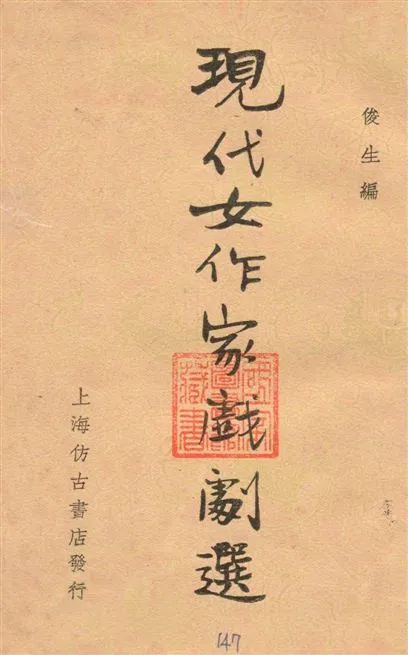 俊生編
現代女作家戲劇選
上海仿古書店發行
147